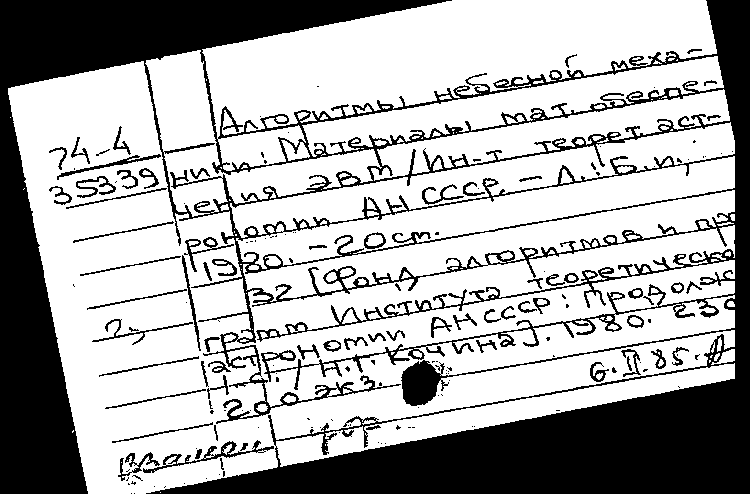 Алгоритмы небесной меха-
74-4
35339
ники: Материалы мат. обеспе-
чения ЭВМ / Ин-т теорет. аст-
рономии АН СССР. - Л.: Б.и.,
1980. - 20см.
32. [Фонд алгоритмов и про
грамм Института теоретическо
астрономии АН СССР: Продолж
/ Н.Г. Кочина]. 1980. 23с
200 экз.
6.II.85.
Взамен